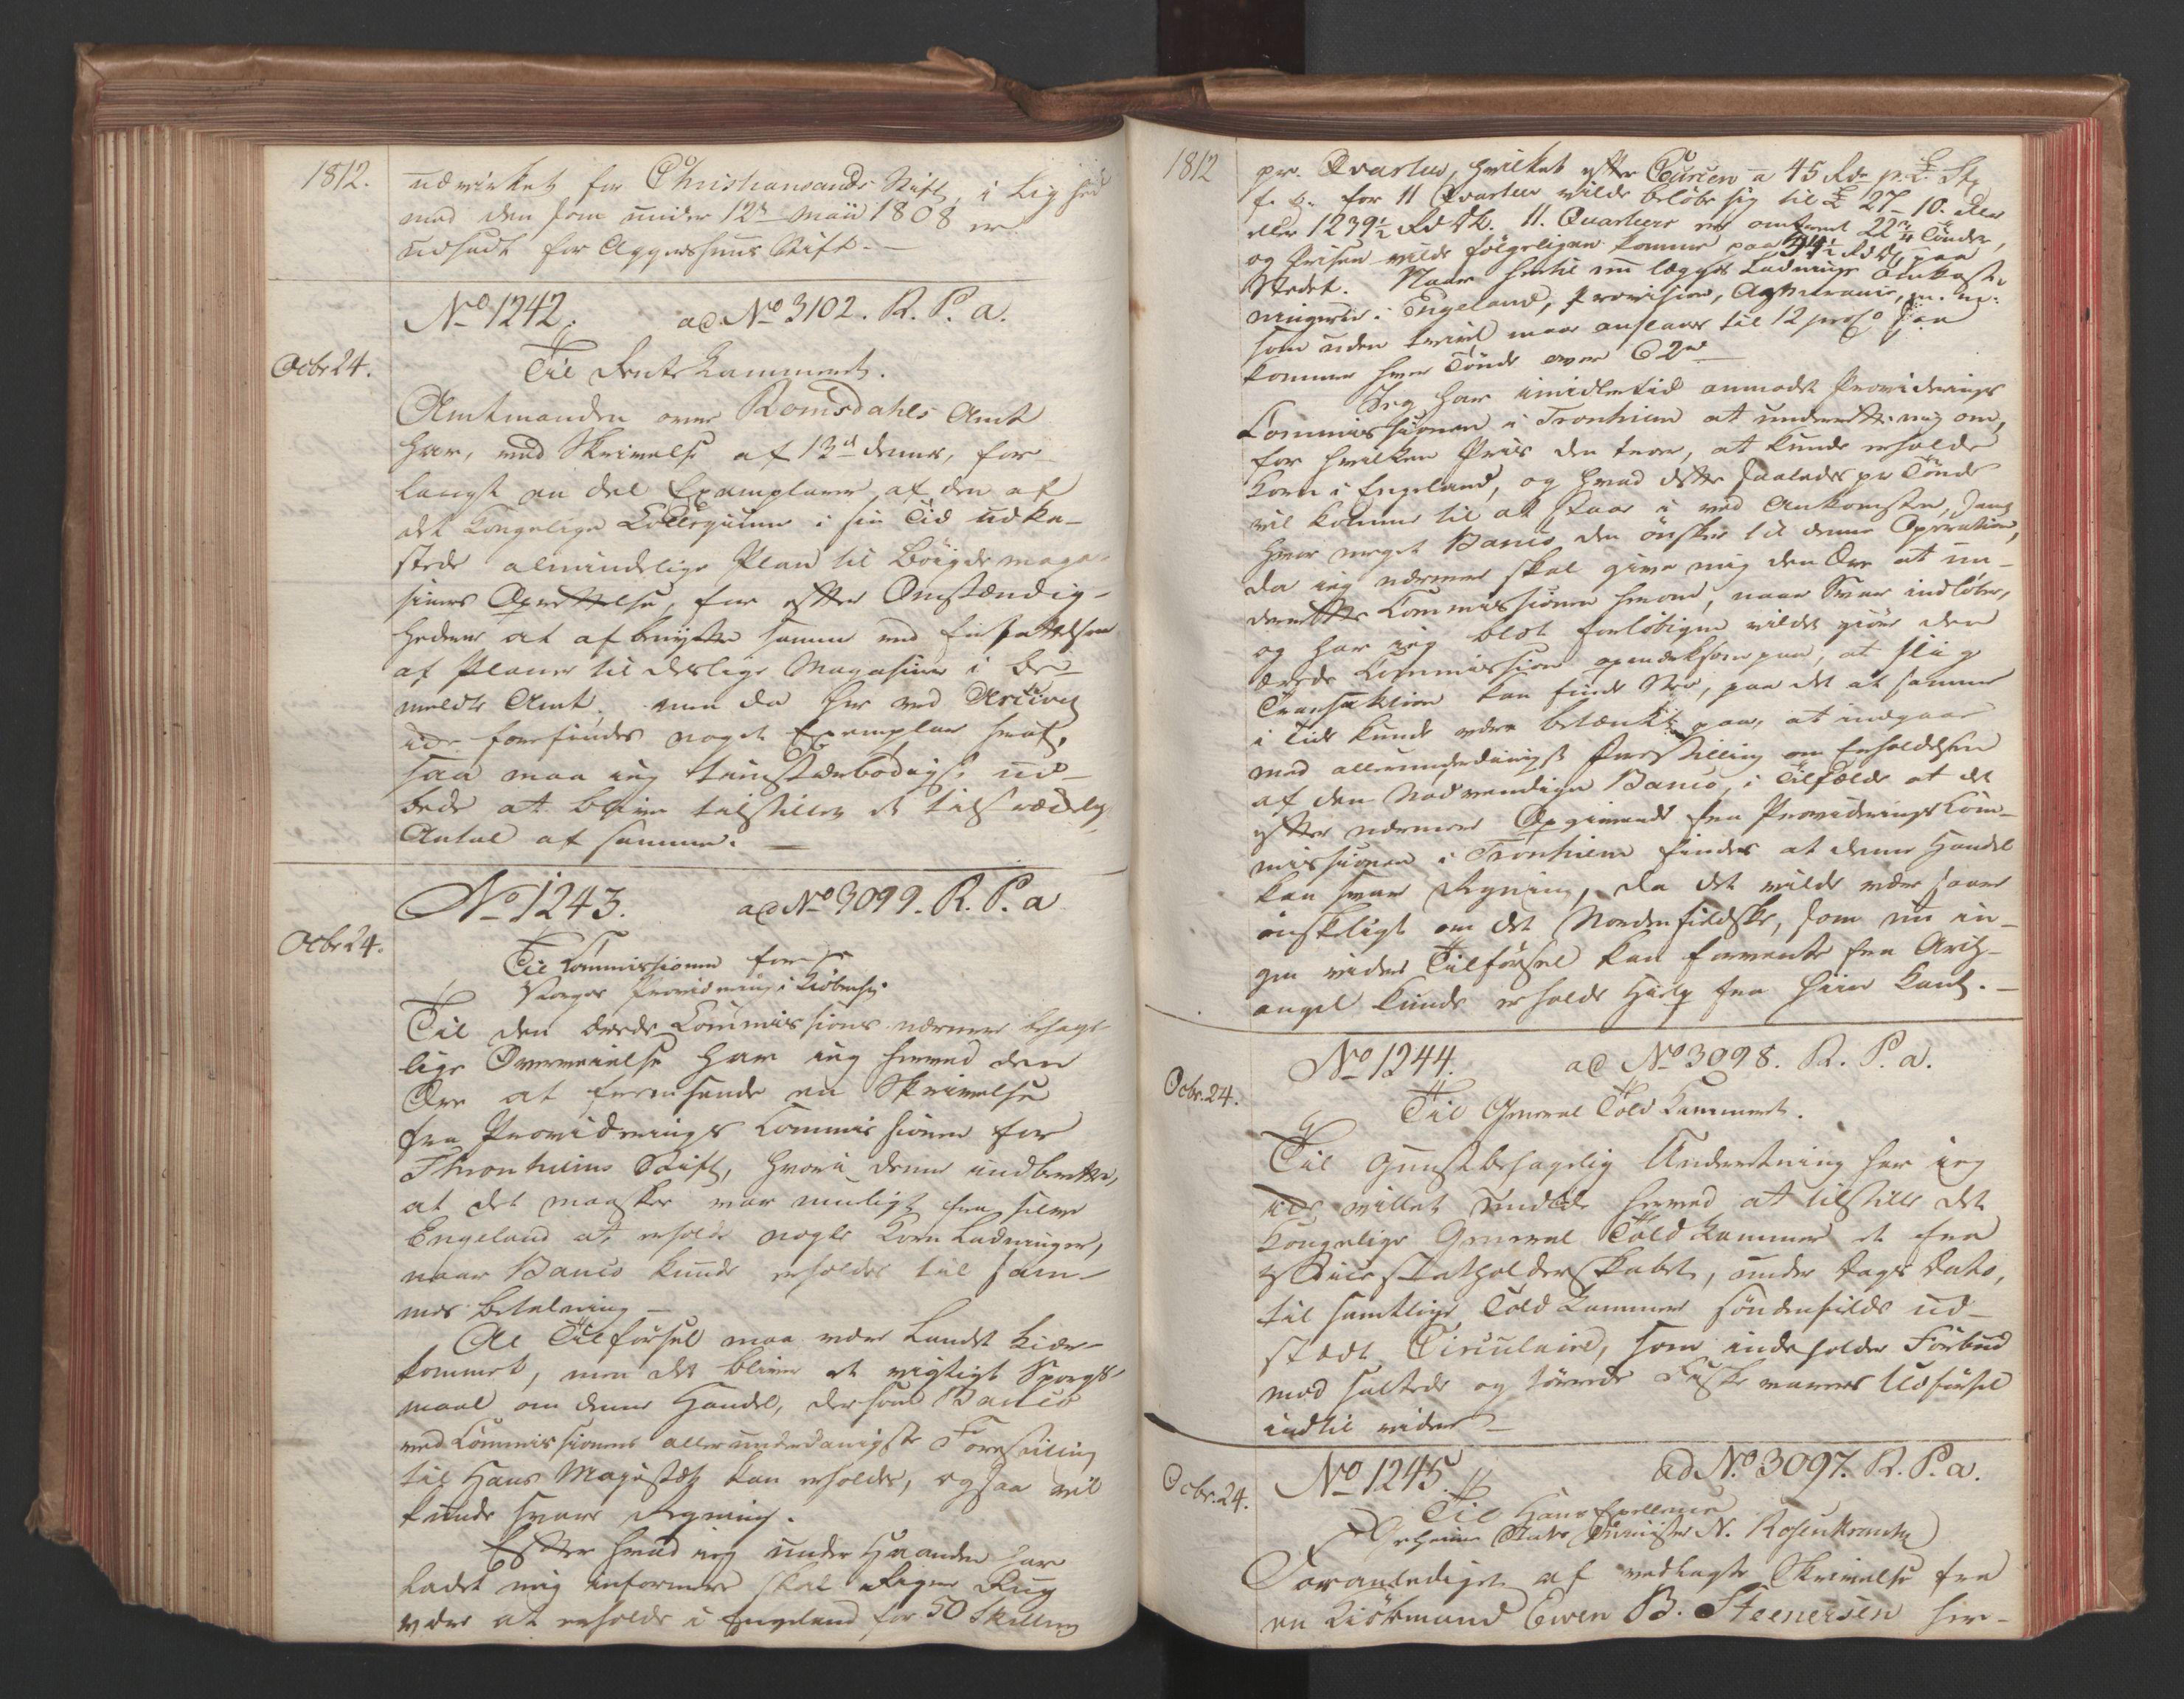 1812.
udvirket for Christiansands Stift, i Lighed
med den som under 12te Maii 1808 er
udfærdt for Aggershuus Stift.
No 1242. ad No 3102. R. P. a.
Octbr 24.
Til Rente Kammeret.
Amtmanden over Romsdahls Amt
har, med Skrivelse af 13de dennes, for-
langt en deel Exemplarer af den af
det Kongelige Collegium i sin Tid udka-
stede almindelige Plan til Böigdemaga-
siners Oprettelse, for efter Omstændig-
hederne at afbenytte samme ved Forfattelsen
af Planer til deslige Magasiner i be-
meldte Amt, men da her ved Archivet
icke forefindes noget Exemplar heraf,
saa maa ieg tienstærbödigst ud-
bede at blive tilstillet et tilstrækkelig
Antal af samme.
No 1243. ad No 3099. R. P. a
Octbr 24.
Til Commissionen for
Norges Providering i Kiöbenhn.
Til den ærede Commissions nærmere behage-
lige Overveielse har ieg herved den
Ære at fremsende en Skrivelse
fra Providerings Commissionen for
Thronhiems Stift, hvori denne indberetter,
at det maaskee var muligt fra selve
Engeland at erholde nogle Korn Ladninger,
naar Banco kunde erholdes til sam-
mes betalning
Al Tilförsel maa være Landet kier-
kommet, men det bliver et vigtigt Spørgs-
maal om denne Handel, dersom Banco
ved Commissionens allerunderdanigste Forestilling
til Hans Majestæt kan erholdes, ogsaa vil
kunde svare Regning.
Efter hvad ieg under Haanden har
ladet mig informere skal Rigaer Rug
være at erholde i Engeland for 50 Skilling
1812
pr. Qvarteer, hvilket efter Courcen a 45 Rdr p. £ St.
f. E. for 11 Qvarteer vilde belöbe sig til £ 27-10. eller
eller 1239½ Rd DC. 11. Quarteers er omtrent 22 Tönder,
og Prisen vilde fölgeligen komme paa 54½ Rd DC paa
Stedet. Naar hertil nu lægges Ladnings Omkost-
ningerne i Engeland, Provision, Assurance, m. m.
som uden tvivl maae anslaaes til 12 proCto saa
kommer hver Tönde over 62rd
Jeg har imidlertid anmodet Providerings
Commissionen i Tronhiem at underrette mig om,
for hvilken Priis den troer, at kunde erholde
Korn i Engeland, og hvad dette saaledes pr Tönde
vil komme til at staae i ved Ankomsten, samt
hvor meget Banco den önsker til denne Operation,
da ieg nærmere skal give mig den Ære at un-
derrette Commissionen herom, naar Svar indlöber,
og har ieg blot forlöbigen vildet giöre den
ærede Commission opmærksom paa, at slig
Transaktion kan finde Sted, paa det at samme
i Tide kunde være betænkt paa, at indgaae
med allerunderdanigst Forestilling om Erholdelsen
af den nödvendige Banco, i Tilfælde at det
efter nærmere Opgivende fra Providerings Com-
missionen i Tronhiem findes at denne Handel
kan svare Regning, da det vilde være saare
önskeligt om det Nordenfieldske, som nu in-
gen videre Tilförsel kan forvente fra Arch-
angel kunde erholde Hielp fra hiin Kant.
No 1244. ad No 3098. R. P. a.
Octbr. 24.
Til General Told Kammeret.
Til gunstbehagelig Underretning har ieg
icke villet undlade herved at tilstille det
Kongelige General Told Kammer et fra
Vice Statholderskabet, under Dags Dato,
til samtlige Told Kammer söndenfields ud-
stædt Circulaire, som indeholder Forbud
mod saltede og törrede Fiske varers Udförsel
indtil videre
No 1245. ad No. 3097. R. P. a.
Octbr. 24.
Til Hans Excellence
Geheime Stats Minister N. Rosenkrantz
Foranlediget af vedlagte Skrivelse fra
en Kiöbmand Ewen B. Steenersen her-